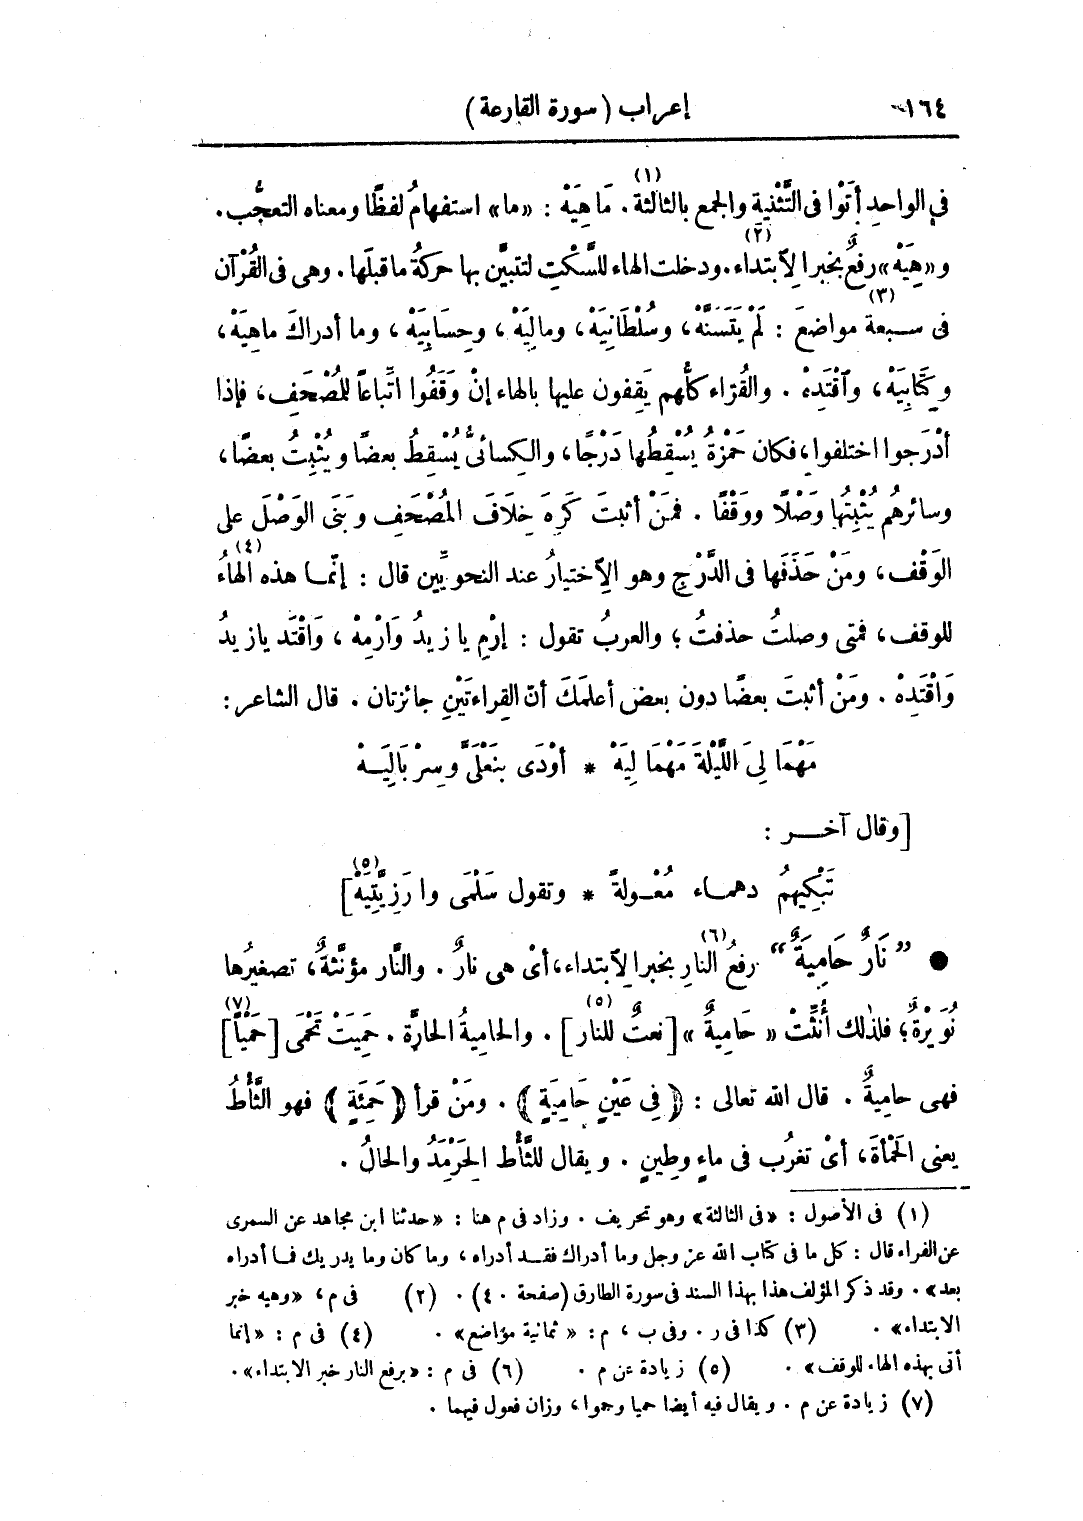 ١٦٤ إعراب (سورة القارعة)
فى الواحدِ أتَوْا فى التَّثْنية والجمع بالثالثة(١). مَا هِيَهْ : «ما» استفهامُ لفظًا ومعناه التعجُّب.
و«هِيَهْ» رفعٌ بخبرا لِآبتداء(٢). ودخلت الهاء للسَّكْتِ لتتبيَّن بها حركةُ ماقبلَها. وهى فى القُرْآن
فى سـبعة(٣) مواضعَ : لَمْ يَتَسَنَّهْ، وسُلْطَانِيَهْ، ومالِيَهْ، وحِسَابِيَهْ، وما أدراكَ ماهِيَهْ،
وكِتَابِيَهْ، وآقْتَدِهْ. والقُرّاء كلُّهم يَقِفون عليها بالهاء إنْ وَقَفُوا اتِّباعًا للمُصْحَفِ، فإذا
أدْرَجوا اختلفوا، فكان حَمْزةُ يُسْقِطُها دَرْجًا، والكِسائىُّ يُسْقِطُ بعضًا ويُثْبِتُ بعضًا،
وسائرهُم يُثْبِتُها وَصْلًا ووَقْفًا. فمَنْ أثبتَ كَرِهَ خِلَافَ المُصْحَفِ وبَنَى الوَصْلَ على
الوَقْف، ومَنْ حَذَفَها فى الدَّرْجِ وهو الِآختيارُ عند النحويِّين قال : إنّمـا هذه الهاءُ(٤)
للوقف، فمتى وصلتُ حذفتُ؛ والعربُ تقول : إرْمِ يا زيدُ وَارْمِهْ، وَاقْتَد يازيدُ
وَاقْتَدِهْ. ومَنْ أثبتَ بعضًا دون بعض أعلمَكَ أنّ القِراءتَيْنِ جائزتان. قال الشاعر :
مَهْمَا لِىَ اللَّيْلَةَ مَهْمَا لِيَهْ * أوْدَى بنَعْلَىَّ وسِرْبَالِيَـهْ
[وقال آخـر :
تَبْكِيهمُ دهمـاء مُعْـولةً * وتقول سَلْمَى وا رَزِيَّتِيَهْ](٥)
● ”نَارٌ حَامِيَةٌ“ رفعُ النارِ بخبرا لِآبتداء(٦)، أىْ هى نارٌ. والنَّار مؤنَّثةٌ، تصغيرُها
نُوَيْرةٌ؛ فلذٰلك أُنِّثَتْ «حَامِيةٌ» [نعتٌ للنار](٥). والحامِيةُ الحارّة. حَمِيَتْ تَحْمَى [حَمْيًا](٧)
فهى حاميةٌ. قال الله تعالى : ﴿فِى عَيْنٍ حَامِيَةٍ﴾. ومَنْ قرأ ﴿حَمِئَةٍ﴾ فهو الثَّأْطُ
يعنى الحَمْأةَ، أىْ تغرُب فى ماءٍ وطِينٍ. ويقال للثَّأْط الحَرْمَدُ والحالُ.
(١) فى الأصول : «فى الثالثة» وهو تحريف. وزاد فى م هنا : «حدثنا ابن مجاهد عن السمرى
عن الفراء قال : كل ما فى كتاب الله عز وجل وما أدراك فقـد أدراه، وما كان وما يدريك فمـا أدراه
بعد». وقد ذكر المؤلف هذا بهذا السند فى سورة الطارق (صفحة ٤٠). (٢) فى م، «وهيه خبر
الابتداء». (٣) كذا فى ر. وفى ب، م : «ثمانية مؤاضع». (٤) فى م : «إنما
أتى بهذه الهاء للوقف». (٥) زيادة عن م. (٦) فى م : «برفع النار خبر الابتداء».
(٧) زيادة عن م. ويقال فيه أيضا حميا وحموا، وزان فعول فيهما.